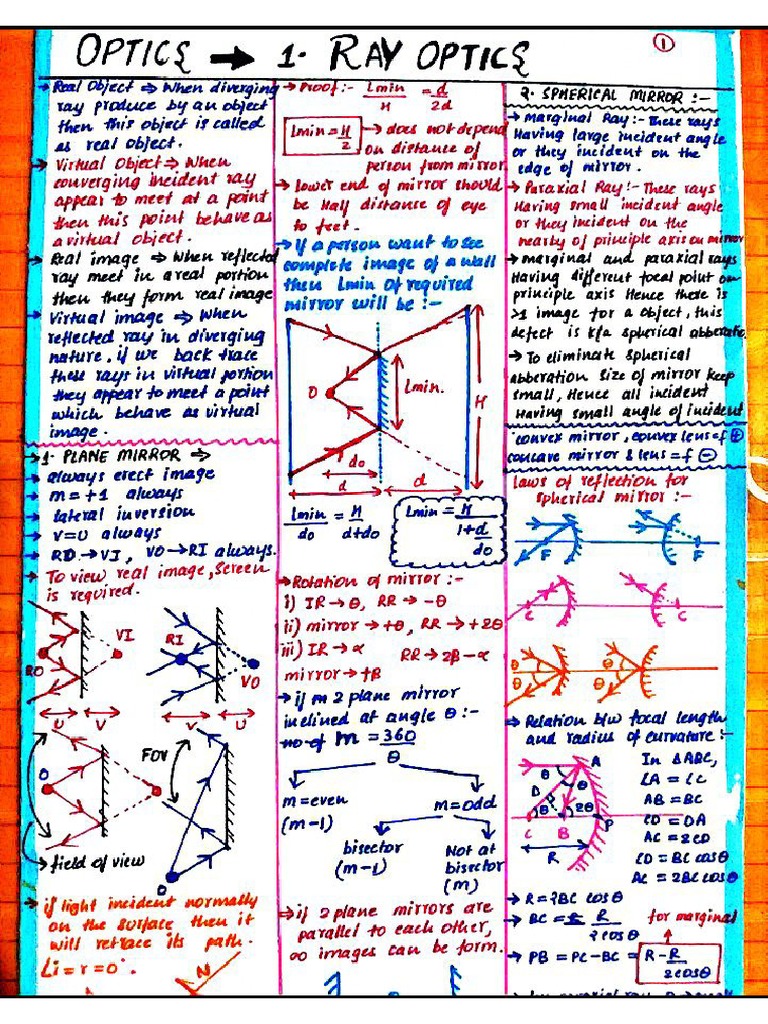 OPTICS → 1. RAY OPTICS
1
→ Real Object ⇒ When diverging
ray produce by an object
then this object is called
as real object.
→ Virtual Object ⇒ When
converging incident ray
appear to meet at a point
then this point behave as
a virtual object.
→ Real image ⇒ When reflected
ray meet in a real portion
then they form real image
→ Virtual image ⇒ When
reflected ray in diverging
nature, if we back trace
these rays in virtual portion
they appear to meet a point
which behave as virtual
image.
→ 1. PLANE MIRROR ⇒
→ always erect image
→ m = +1 always
→ lateral inversion
→ V=U always
→ RO → VI, VO → RI always.
→ To view real image, screen
is required.
RO
VI
RI
VO
U
V
V
U
O
FOV
O
→ field of view
→ if light incident normally
on the surface then it
will retrace its path.
∠i = r = 0°.
N
→ Proof:- Lmin/H = d/2d
Lmin = H/2
→ does not depend
on distance of
person from mirror.
→ Lower end of mirror should
be Half distance of eye
to feet.
→ If a person want to see
complete image of a wall
then Lmin of required
mirror will be :-
O
Lmin.
H
do
d
d
Lmin/do = H/d+do
Lmin = H/1+d/do
→ Rotation of mirror :-
i) IR → θ, RR → -θ
ii) mirror → +θ, RR → +2θ
iii) IR → α
RR → 2β-α
mirror → +β
→ if m 2 plane mirror
inclined at angle θ :-
no. of m = 360/θ
m = even
(m-1)
m = odd
bisector
(m-1)
Not at
bisector
(m)
→ if 2 plane mirrors are
parallel to each other,
∞ images can be form.
2. SPHERICAL MIRROR :-
→ Marginal Ray:- These rays
Having large incident angle
or they incident on the
edge of mirror.
→ Paraxial Ray:- These rays
Having small incident angle
or they incident on the
nearby of principle axis on mirror
→ marginal and paraxial rays
Having different focal point on
principle axis Hence there is
>1 image for a object, this
defect is k/a spherical abberatio.
→ To eliminate spherical
abberation size of mirror keep
small, Hence all incident
Having small angle of incident
convex mirror, convex lens = f ⊕
concave mirror & lens = f ⊖
Laws of reflection for
spherical mirror :-
F
F
C
C
θ
θ
θ
θ
→ Relation b/w focal length
and radius of curvature :-
A
θ
θ
D
θ
2θ
C
B
P
R
In ΔABC,
∠A = ∠C
AB = BC
CD = DA
AC = 2CD
CD = BC cosθ
AC = 2BC cosθ
→ R = 2BC cosθ
→ BC = R/2cosθ
for marginal
→ PB = PC - BC = R - R/2cosθ